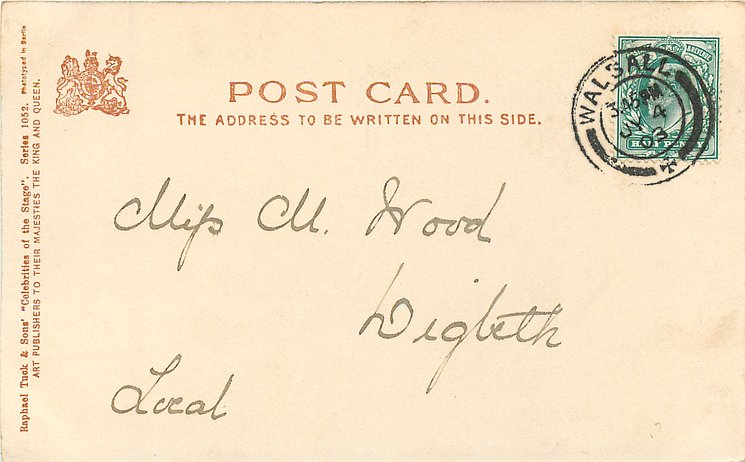 POST CARD.
THE ADDRESS TO BE WRITTEN ON THIS SIDE.
WALSALL
3.45 PM
JN 4
03
HALF PEN
Miss M. Wood
Digbeth
Local
Raphael Tuck & Sons' "Celebrities of the Stage". Series 1052. Phototyped in Berlin
ART PUBLISHERS TO THEIR MAJESTIES THE KING AND QUEEN.